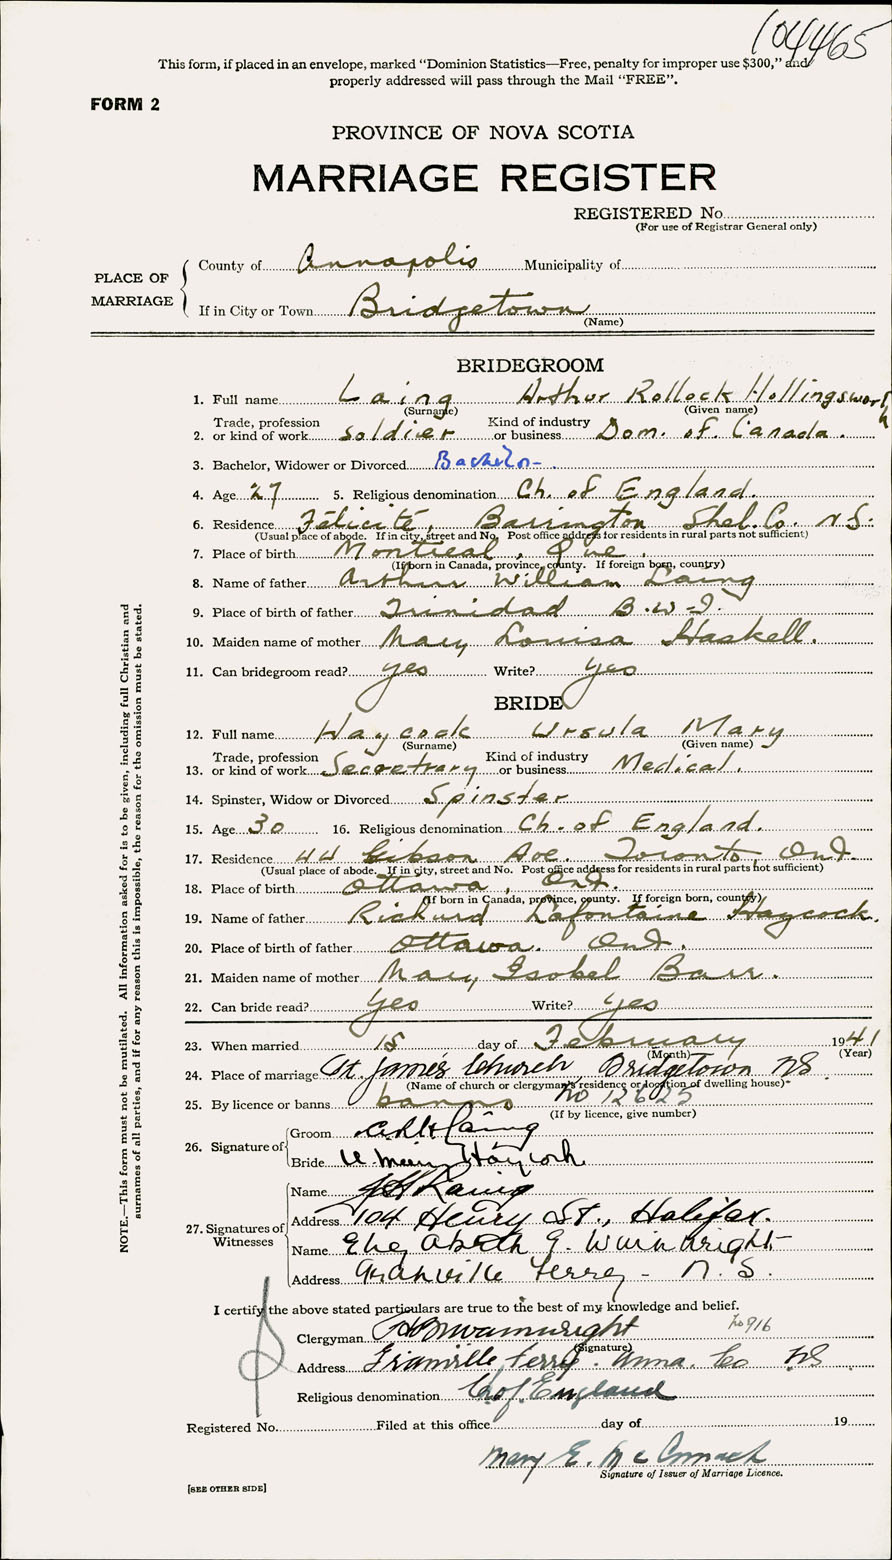 104465
This form, if placed in an envelope, marked “Dominion Statistics—Free, penalty for improper use $300,” and
properly addressed will pass through the Mail “FREE”.
FORM 2
PROVINCE OF NOVA SCOTIA
MARRIAGE REGISTER
REGISTERED No.
(For use of Registrar General only)
PLACE OF MARRIAGE
County of Annapolis Municipality of
If in City or Town Bridgetown
(Name)
BRIDEGROOM
1. Full name Laing Arthur Rollock Hollingsworth
(Surname) (Given name)
2. Trade, profession or kind of work soldier Kind of industry or business Dom. of Canada.
3. Bachelor, Widower or Divorced Bachelor
4. Age 27 5. Religious denomination Ch. of England.
6. Residence Félicité, Barrington Shel. Co. N.S.
(Usual place of abode. If in city, street and No. Post office address for residents in rural parts not sufficient)
7. Place of birth Montreal, Que.
(If born in Canada, province, county. If foreign born, country)
8. Name of father Arthur William Laing
9. Place of birth of father Trinidad B.W.I.
10. Maiden name of mother Mary Louisa Haskell.
11. Can bridegroom read? yes Write? yes
BRIDE
12. Full name Haycock Ursula Mary
(Surname) (Given name)
13. Trade, profession or kind of work Secretrary Kind of industry or business Medical.
14. Spinster, Widow or Divorced Spinster
15. Age 30 16. Religious denomination Ch. of England.
17. Residence 44 Gibson Ave. Toronto, Ont.
(Usual place of abode. If in city, street and No. Post office address for residents in rural parts not sufficient)
18. Place of birth Ottawa, Ont.
(If born in Canada, province, county. If foreign born, country)
19. Name of father Richard Lafontaine Haycock.
20. Place of birth of father Ottawa. Ont.
21. Maiden name of mother Mary Isobel Barr.
22. Can bride read? yes Write? yes
23. When married 15 day of February 1941
(Month) (Year)
24. Place of marriage St. James Church, Bridgetown NS.
(Name of church or clergyman's residence or location of dwelling house)
25. By licence or banns banns No 12625
(If by licence, give number)
26. Signature of
Groom ARH Laing
Bride U. Mary Haycock
27. Signatures of Witnesses
Name Laing
Address 104 Henry St., Halifax.
Name Elizabeth G. Wainwright
Address Granville Ferry - N.S.
I certify the above stated particulars are true to the best of my knowledge and belief.
Clergyman Wainwright No 916
(Signature)
Address Granville Ferry. Anna. Co NS
Religious denomination Ch of England
Registered No. Filed at this office day of 19
Mary E. McCormack
Signature of Issuer of Marriage Licence.
[SEE OTHER SIDE]
NOTE.—This form must not be mutilated. All information asked for is to be given, including full Christian and
surnames of all parties, and if for any reason this is impossible, the reason for the omission must be stated.